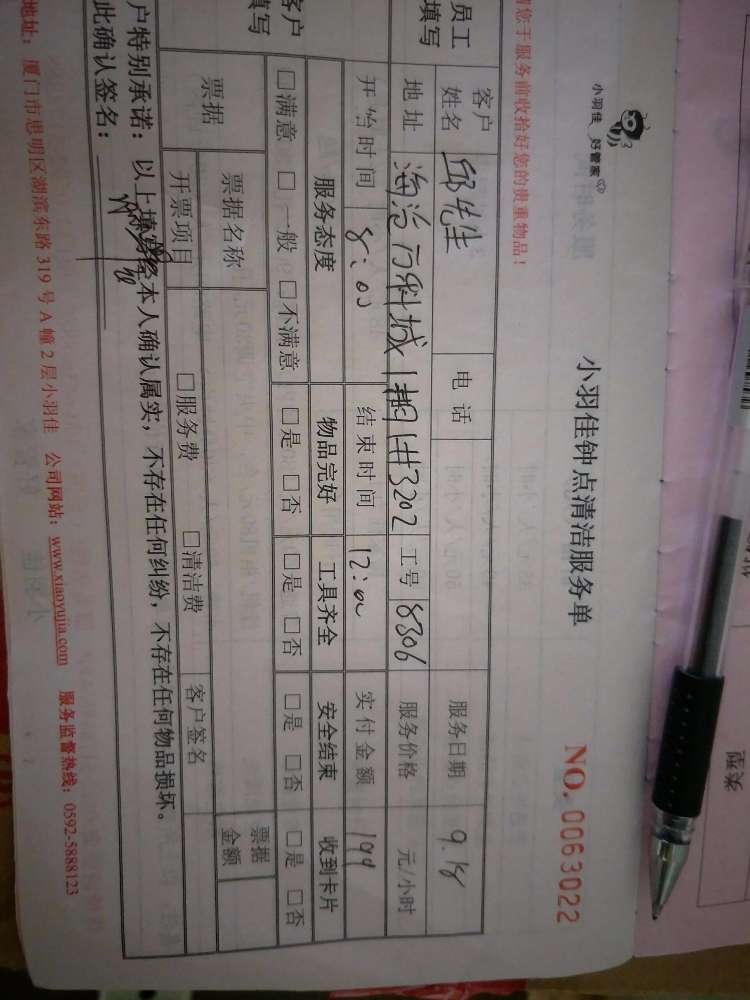 小羽佳 好管家
小羽佳钟点清洁服务单
NO. 0063022
您于服务前收拾好您的贵重物品！
员工
填写
客户
姓名 邱先生 电话 服务日期 9.18
地址 海沧万科城1期1#3202 工号 8306 服务价格 元/小时
开始时间 8:00 结束时间 12:00 实付金额 199
客户
填写
服务态度 物品完好 工具齐全 安全结束 收到卡片
□满意 □一般 □不满意 □是 □否 □是 □否 □是 □否 □是 □否
票据 票据名称 票据
金额
开票项目 □服务费 □清洁费 客户签名
户特别承诺：以上填写经本人确认属实，不存在任何纠纷，不存在任何物品损坏。
此确认签名：
地址：厦门市思明区湖滨东路319号A幢2层小羽佳 公司网站：www.xiaoyujia.com 服务监督热线：0592-5888123